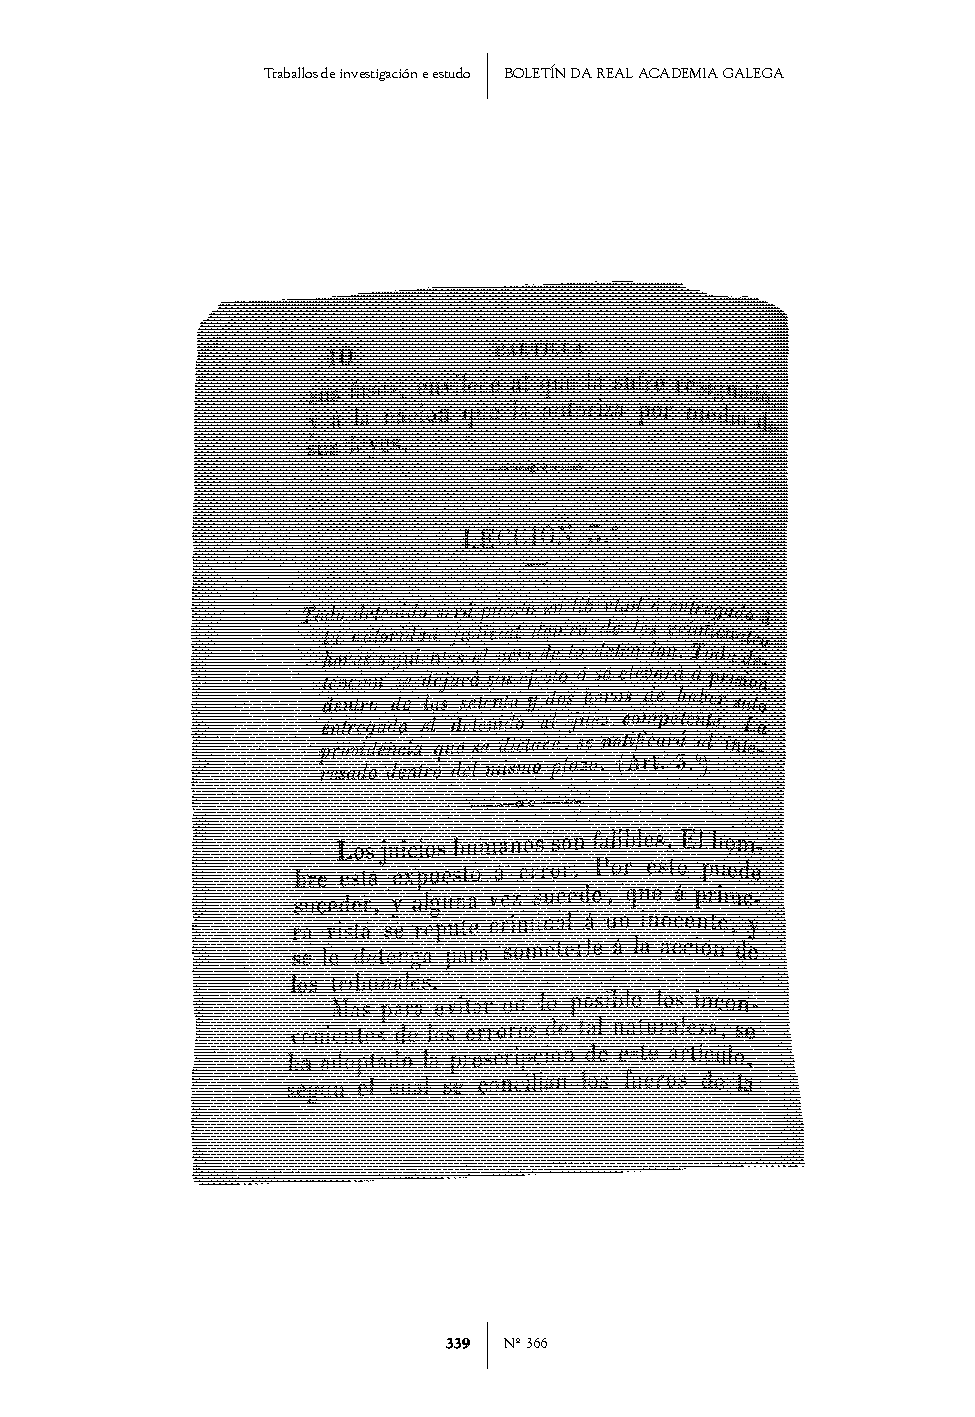 Traballos de investigación e estudo
BOLETÍN DA REAL ACADEMIA GALEGA
10 CARTILLA
envilece al que la sufre
y á la nacion que la autoriza por medio d
sus leyes.
LECCION 5.ª
Todo detenido será puesto en libertad ó entregado á
la autoridad judicial dentro de las veinticuatro
horas siguientes al acto de la detencion. Toda de-
tencion se dejará sin efecto ó se elevará á prision
dentro de las setenta y dos horas de haber sido
entregado el detenido al juez competente. La
providencia que se dictare, se notificará al inte-
resado dentro del mismo plazo. (Art. 3.º)
Los juicios humanos son falibles. El hom-
bre está expuesto á error. Por esto puede
suceder, y alguna vez sucede, que á prime-
ra vista se repute criminal á un inocente, y
se le detenga para someterle á la accion de
los tribunales.
Mas para evitar en lo posible los incon-
venientes de los errores de tal naturaleza, se
ha adoptado la prescripcion de este artículo,
segun el cual se concilian los fueros de la
339
Nº 366